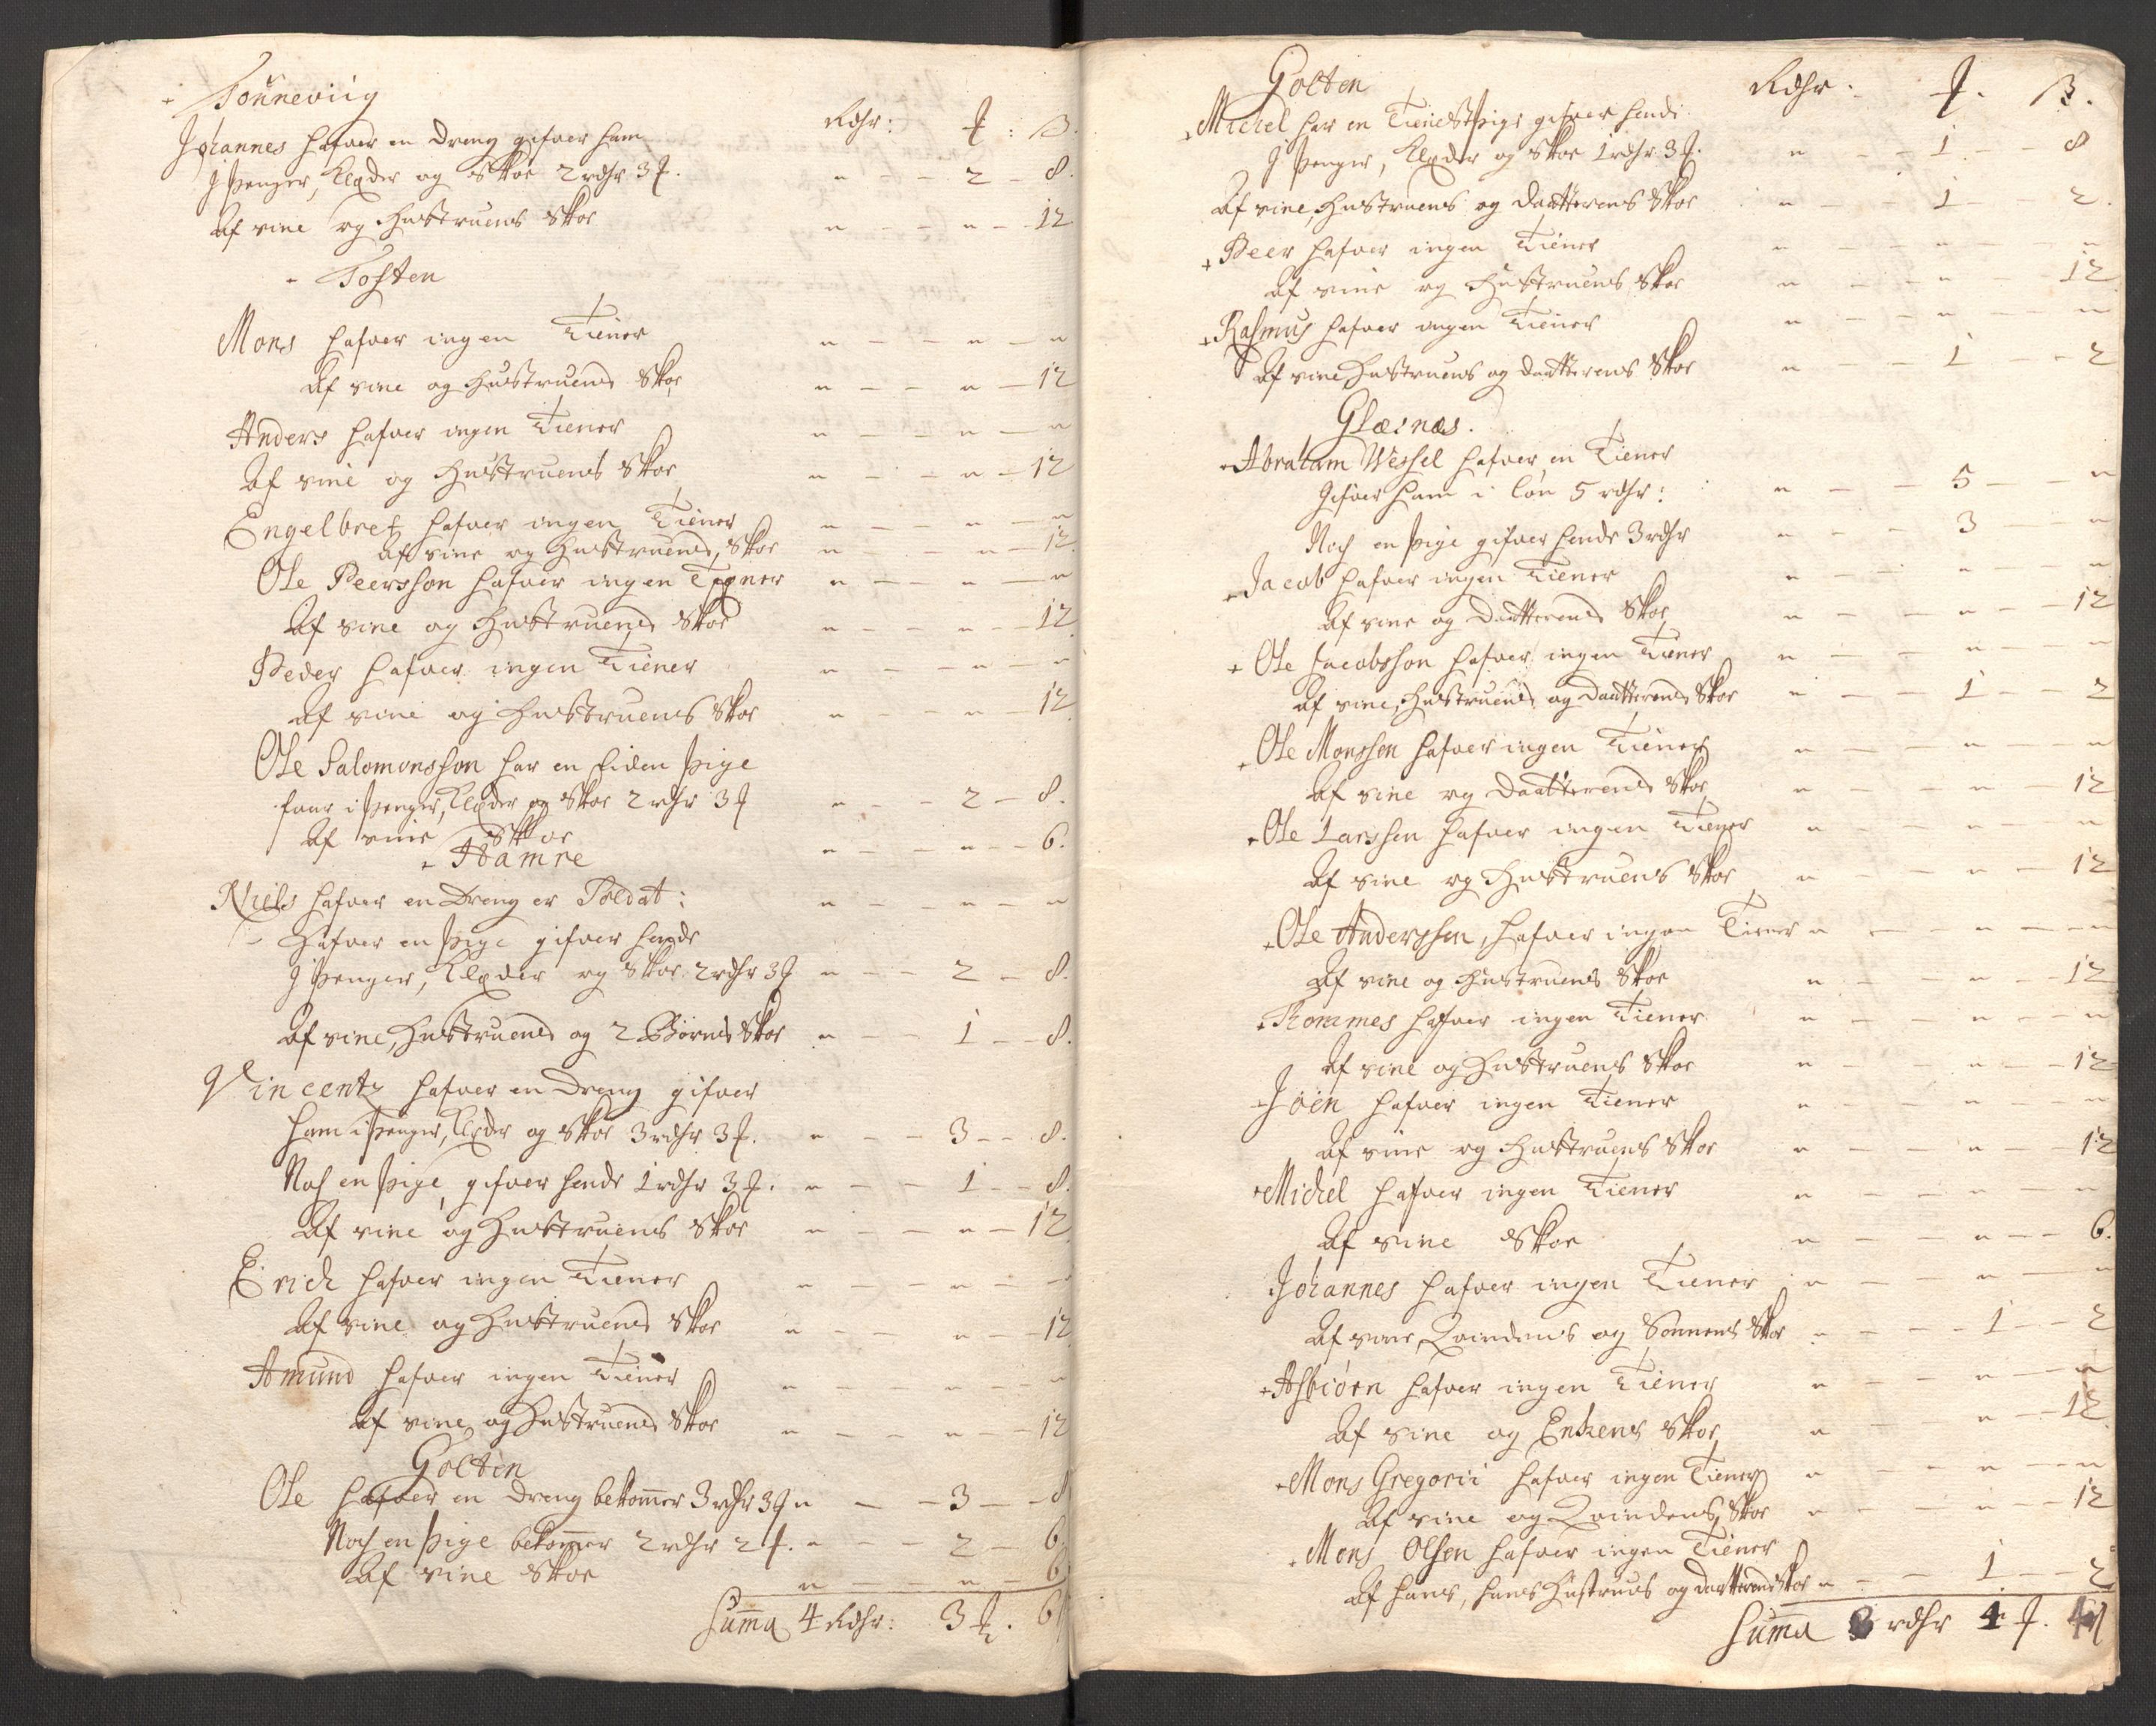 + Tønneviig
Rdhr: ƒ : ß.
Johannes hafver en Dreng gifver ham
J Penger, Klæder og Skoe 2 rdhr 3 ƒ. " — — 2 — 8.
Af sine og Hustruens Skoe " — — " — 12
- Toften
Mons hafver ingen Tiener " — — " — "
Af sine og Hustruens Skoe " — — " — 12
Anders hafver ingen Tiener " — — " — "
Af sine og Hustruens Skoe " — — " — 12
Engelbret hafver ingen Tiener " — — " — "
Af sine og Hustruens Skoe " — — " — 12.
Ole Peersson hafver ingen Tienner " — — " — "
Af sine og Hustruens Skoe " — — " — 12
Peder hafver ingen Tiener " — — " — "
Af sine og Hustruens Skoe " — — " — 12
Ole Salomonsson har en liden Pige
faar i Penger, Klæder og Skoe 2 rdhr 3 ƒ " — — 2 — 8.
Af sine Skoe " — — " — — 6.
- Hamre
Niels hafver en Dreng er Soldat: " — — " — "
- Hafver en Pige gifver hende
J Penger, Klæder og Skoe 2 rdhr 3 ƒ " — — 2 — 8.
Af sine, Hustruens og 2 Børns Skoe " — — 1 — 8.
Vincentz hafver en Dreng gifver
ham i Penger, Klæder og Skoe 3 rdhr 3 ƒ. " — — 3 — 8.
Noch en Pige gifver hende 1 rdhr 3 ƒ. " — — 1 — 8.
Af sine og Hustruens Skoe " — — " — 12
Erich hafver ingen Tiener " — — " — "
Af sine og Hustruens Skoe " — — " — 12
Amund hafver ingen Tiener " — — " — "
Af sine og Hustruens Skoe " — — " — 12
Golten
Ole hafver en Dreng bekommer 3 rdhr 3 ƒ " — — 3 — 8
Noch en Pige bekommer 2 rdhr 2 ƒ. " — — 2 — 6
Af sine Skoe " — — " — 6
Summa 4 Rdhr: 3 ƒ. 6
Golten
Rdhr: ƒ. ß.
+ Michel har en Tieniste Pige gifver hende
J Penger, Klæder og Skoe 1 rdhr 3 ƒ. " — — 1 — — 8
Af sine, Hustruens og Daatterens Skoe " — — 1 — 2.
+ Peer hafver ingen Tiener " — — " — "
Af sine og Hustruens Skoe " — — " — 12
+ Rasmus hafver ingen Tiener " — — " — "
Af sine Hustruens og Daatterens Skoe " — — 1 — — 2
Glæsnæs.
- Abraham Wessel hafver en Tiener
Gifver ham i løn 5 rdhr: " — — 5 — — "
Noch en Pige gifver hende 3 rdhr " — — 3 — — "
- Jacob hafver ingen Tiener " — — " — "
Af sine og Daatterens Skoe " — — " — 12
+ Ole Jacobsson hafver ingen Tiener " — — " — "
Af sine, Hustruens og Daatterens Skoe " — — 1 — — 2
+ Ole Monssen hafver ingen Tiener " — — " — "
Af sine og Daatterens Skoe " — — " — 12
+ Ole Larssen hafver ingen Tiener " — — " — "
Af sine og Hustruens Skoe " — — " — 12
+ Ole Anderssen, hafver ingen Tiener " — — " — "
Af sine og Hustruens Skoe " — — " — 12
+ Thommes hafver ingen Tiener " — — " — "
Af sine og Hustruens Skoe " — — " — 12
- Jöen hafver ingen Tiener " — — " — "
Af sine og Hustruens Skoe " — — " — 12
+ Michel hafver ingen Tiener " — — " — "
Af sine Skoe " — — " — — 6.
Johannes hafver ingen Tiener " — — " — "
Af sine, Qvindens og Sønnens Skoe " — — 1 — — 2
+ Asbiørn hafver ingen Tiener " — — " — "
Af sine og Enkens Skoe " — — " — 12
+ Mons Gregorii hafver ingen Tiener " — — " — "
Af sine og Qvindens Skoe " — — " — 12
+ Mons Olsen hafver ingen Tiener
Af hans, hans Hustrues og Daatterens Skoe " — — 1 — — 2
Summa 3 rdhr 4 ƒ.